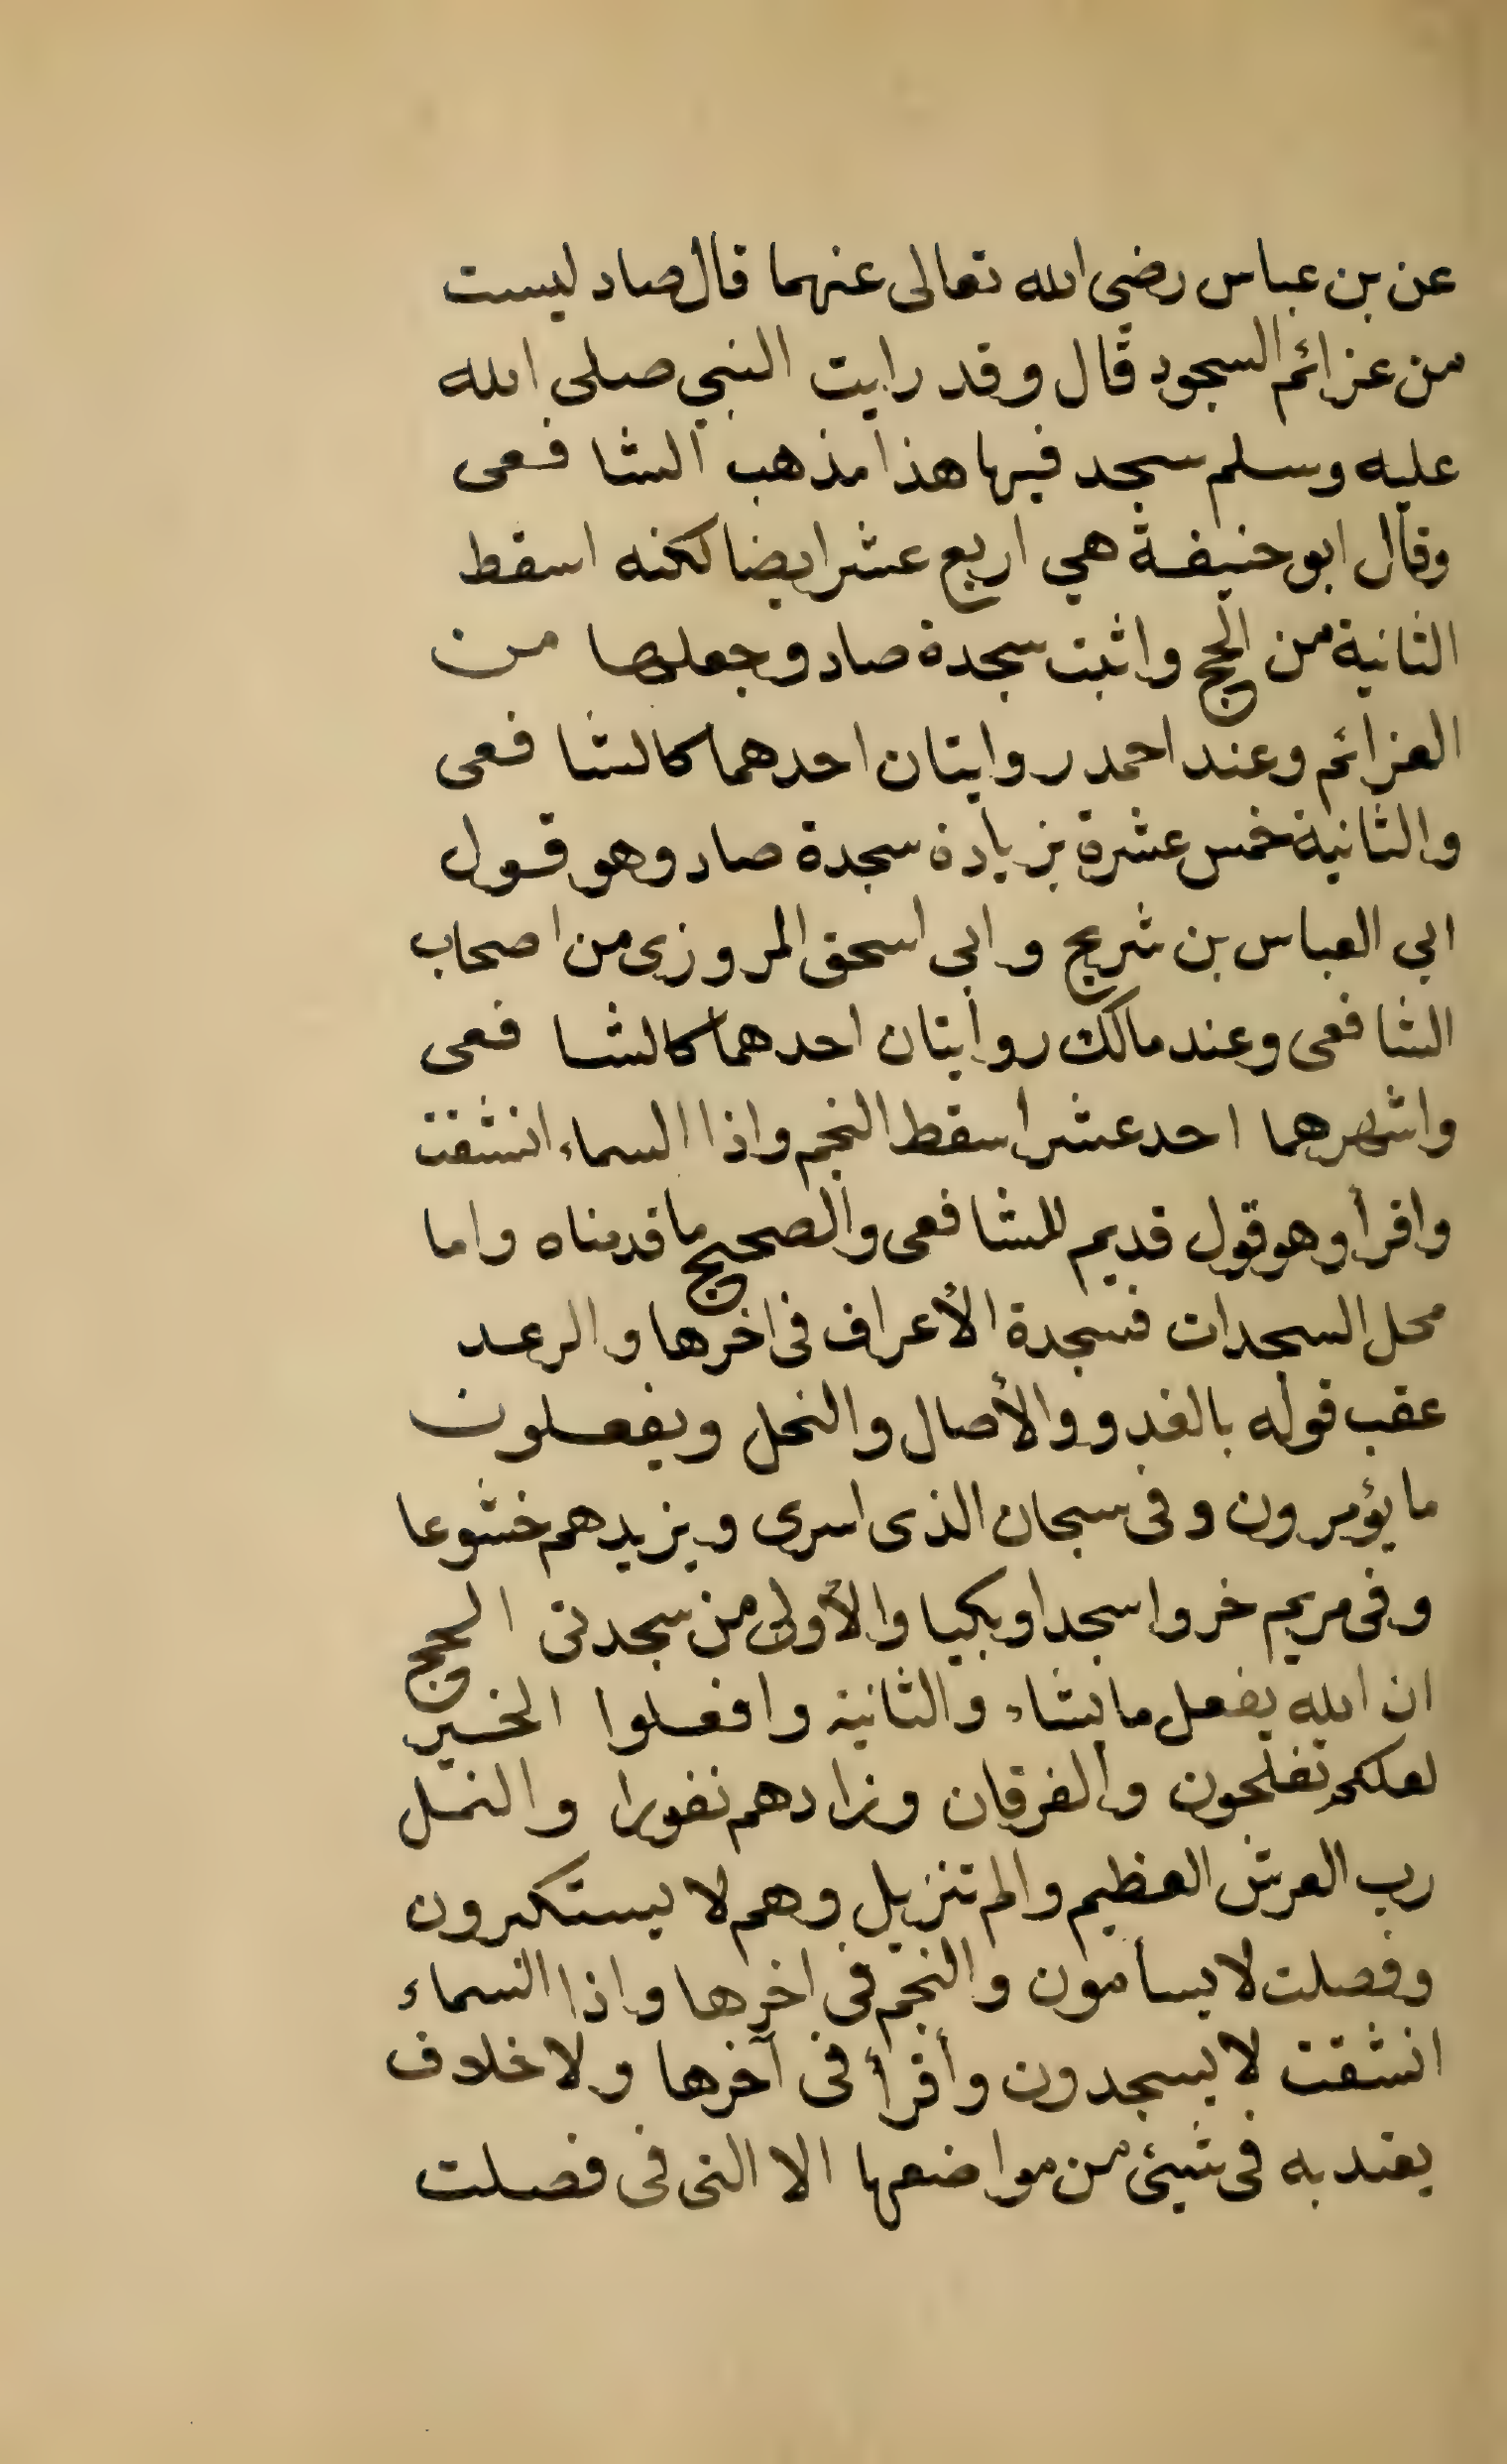 عن بن عباس رضى الله تعالى عنهما قال صاد ليست
من عزائم السجود قال وقد رايت النبي صلى الله
عليه وسلم سجد فيها هذا مذهب الشافعى
وقال ابو حنيفة هي اربع عشر ايضا لكنه اسقط
الثانية من الحج واثبت سجدة صاد وجعلها من
العزائم وعند احمد روايتان احدهما كالشافعى
والثانية خمس عشرة بزيادة سجدة صاد وهو قول
ابي العباس بن شريج وابى اسحق المروزى من اصحاب
الشافعى وعند مالك روايتان احدهما كالشافعى
واشهرهما احد عشر اسقط النجم واذا السماء انشقت
واقرأ وهو قول قديم للشافعى والصحيح ما قدمناه واما
محل السجدات فسجدة الأعراف فى اخرها والرعد
عقب قوله بالغدو والأصال والنحل ويفعلون
ما يؤمرون وفى سبحان الذى اسرى ويزيدهم خشوعا
وفى مريم خروا سجدا وبكيا والأولى من سجدتى الحج
ان الله يفعل ما يشاء والثانية وافعلوا الخير
لعلكم تفلحون والفرقان وزادهم نفورا والنمل
رب العرش العظيم والم تنزيل وهم لا يستكبرون
وفصلت لا يسأمون والنجم فى اخرها واذا السماء
انشقت لا يسجدون وأقرأ فى آخرها ولا خلاف
يعتد به فى شيئ من مواضعها الا التى فى فصلت